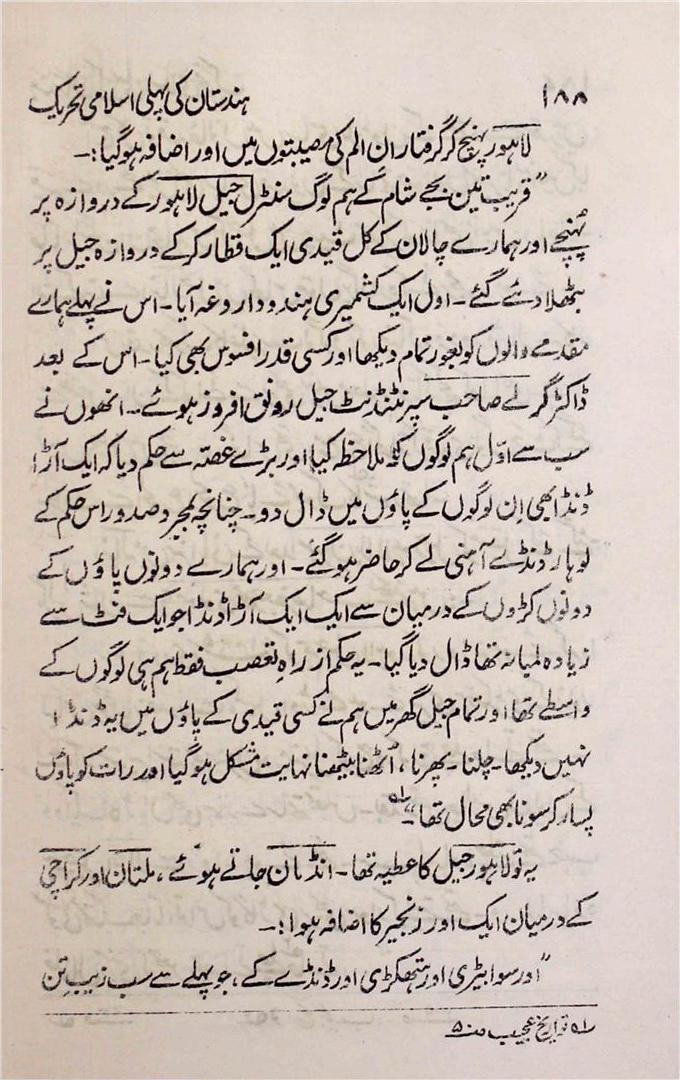 ۱۸۸ ہندستان کی پہلی اسلامی تحریک
لاہور پہنچ کر گرفتارانِ الم کی مصیبتوں میں اور اضافہ ہوگیا:۔
”قریب تین بجے شام کے ہم لوگ سنٹرل جیل لاہور کے دروازہ پر
پہُنچے اور ہمارے چالان کے کل قیدی ایک قطار کرکے دروازہ جیل پر
بٹھلا دئے گئے۔ اول ایک کشمیری ہندو داروغہ آیا۔ اس نے پہلے ہمارے
مقدمے والوں کو بغور تمام دیکھا اور کسی قدر افسوس بھی کیا۔ اس کے بعد
ڈاکٹر گرے صاحب سپرنٹنڈنٹ جیل رونق افروز ہوئے۔ انھوں نے
سب سے اوّل ہم لوگوں کو ملاحظہ کیا اور بڑے غصّہ سے حکم دیا کہ ایک آڑا
ڈنڈا بھی اِن لوگوں کے پاؤں میں ڈال دو۔ چنانچہ بمجرد صدور اس حکم کے
لوہار ڈنڈے آہنی لے کر حاضر ہوگئے۔ اور ہمارے دونوں پاؤں کے
دونوں کڑوں کے درمیان سے ایک ایک آڑا ڈنڈا جو ایک فٹ سے
زیادہ لمبا نہ تھا ڈال دیا گیا۔ یہ حکم از راہِ تعصب فقط ہم ہی لوگوں کے
واسطے تھا اور تمام جیل گھر میں ہم نے کسی قیدی کے پاؤں میں یہ ڈنڈا
نہیں دیکھا۔ چلنا۔ پھرنا، اُٹھنا بیٹھنا نہایت مشکل ہوگیا اور رات کو پاؤں
پسار کر سونا بھی محال تھا“۔ لہ
یہ تو لاہور جیل کا عطیہ تھا۔ انڈمان جاتے ہوئے، ملتان اور کراچی
کے درمیان ایک اور زنجیر کا اضافہ ہوا:۔
”اور سوا بیڑی اور ہتھکڑی اور ڈنڈے کے، جو پہلے سے سب زیب تن
لہ تواریخ عجیب